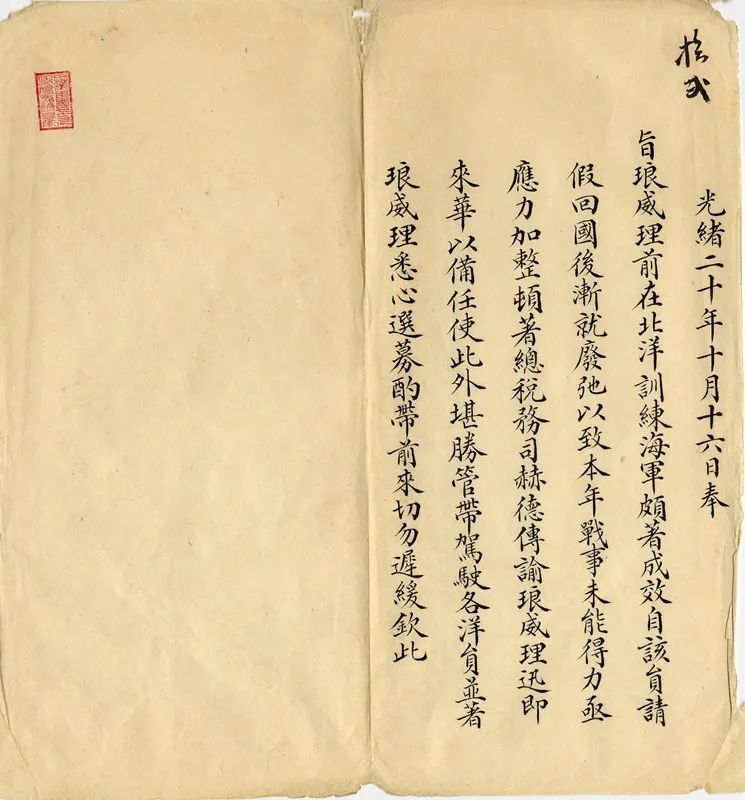 光緒二十年十月十六日奉
旨琅威理前在北洋訓練海軍頗著成效自該員請
假回國後漸就廢弛以致本年戰事未能得力亟
應力加整頓著總稅務司赫德傳諭琅威理迅即
來華以備任使此外堪勝管帶駕駛各洋員並著
琅威理悉心選募酌帶前來切勿遲緩欽此